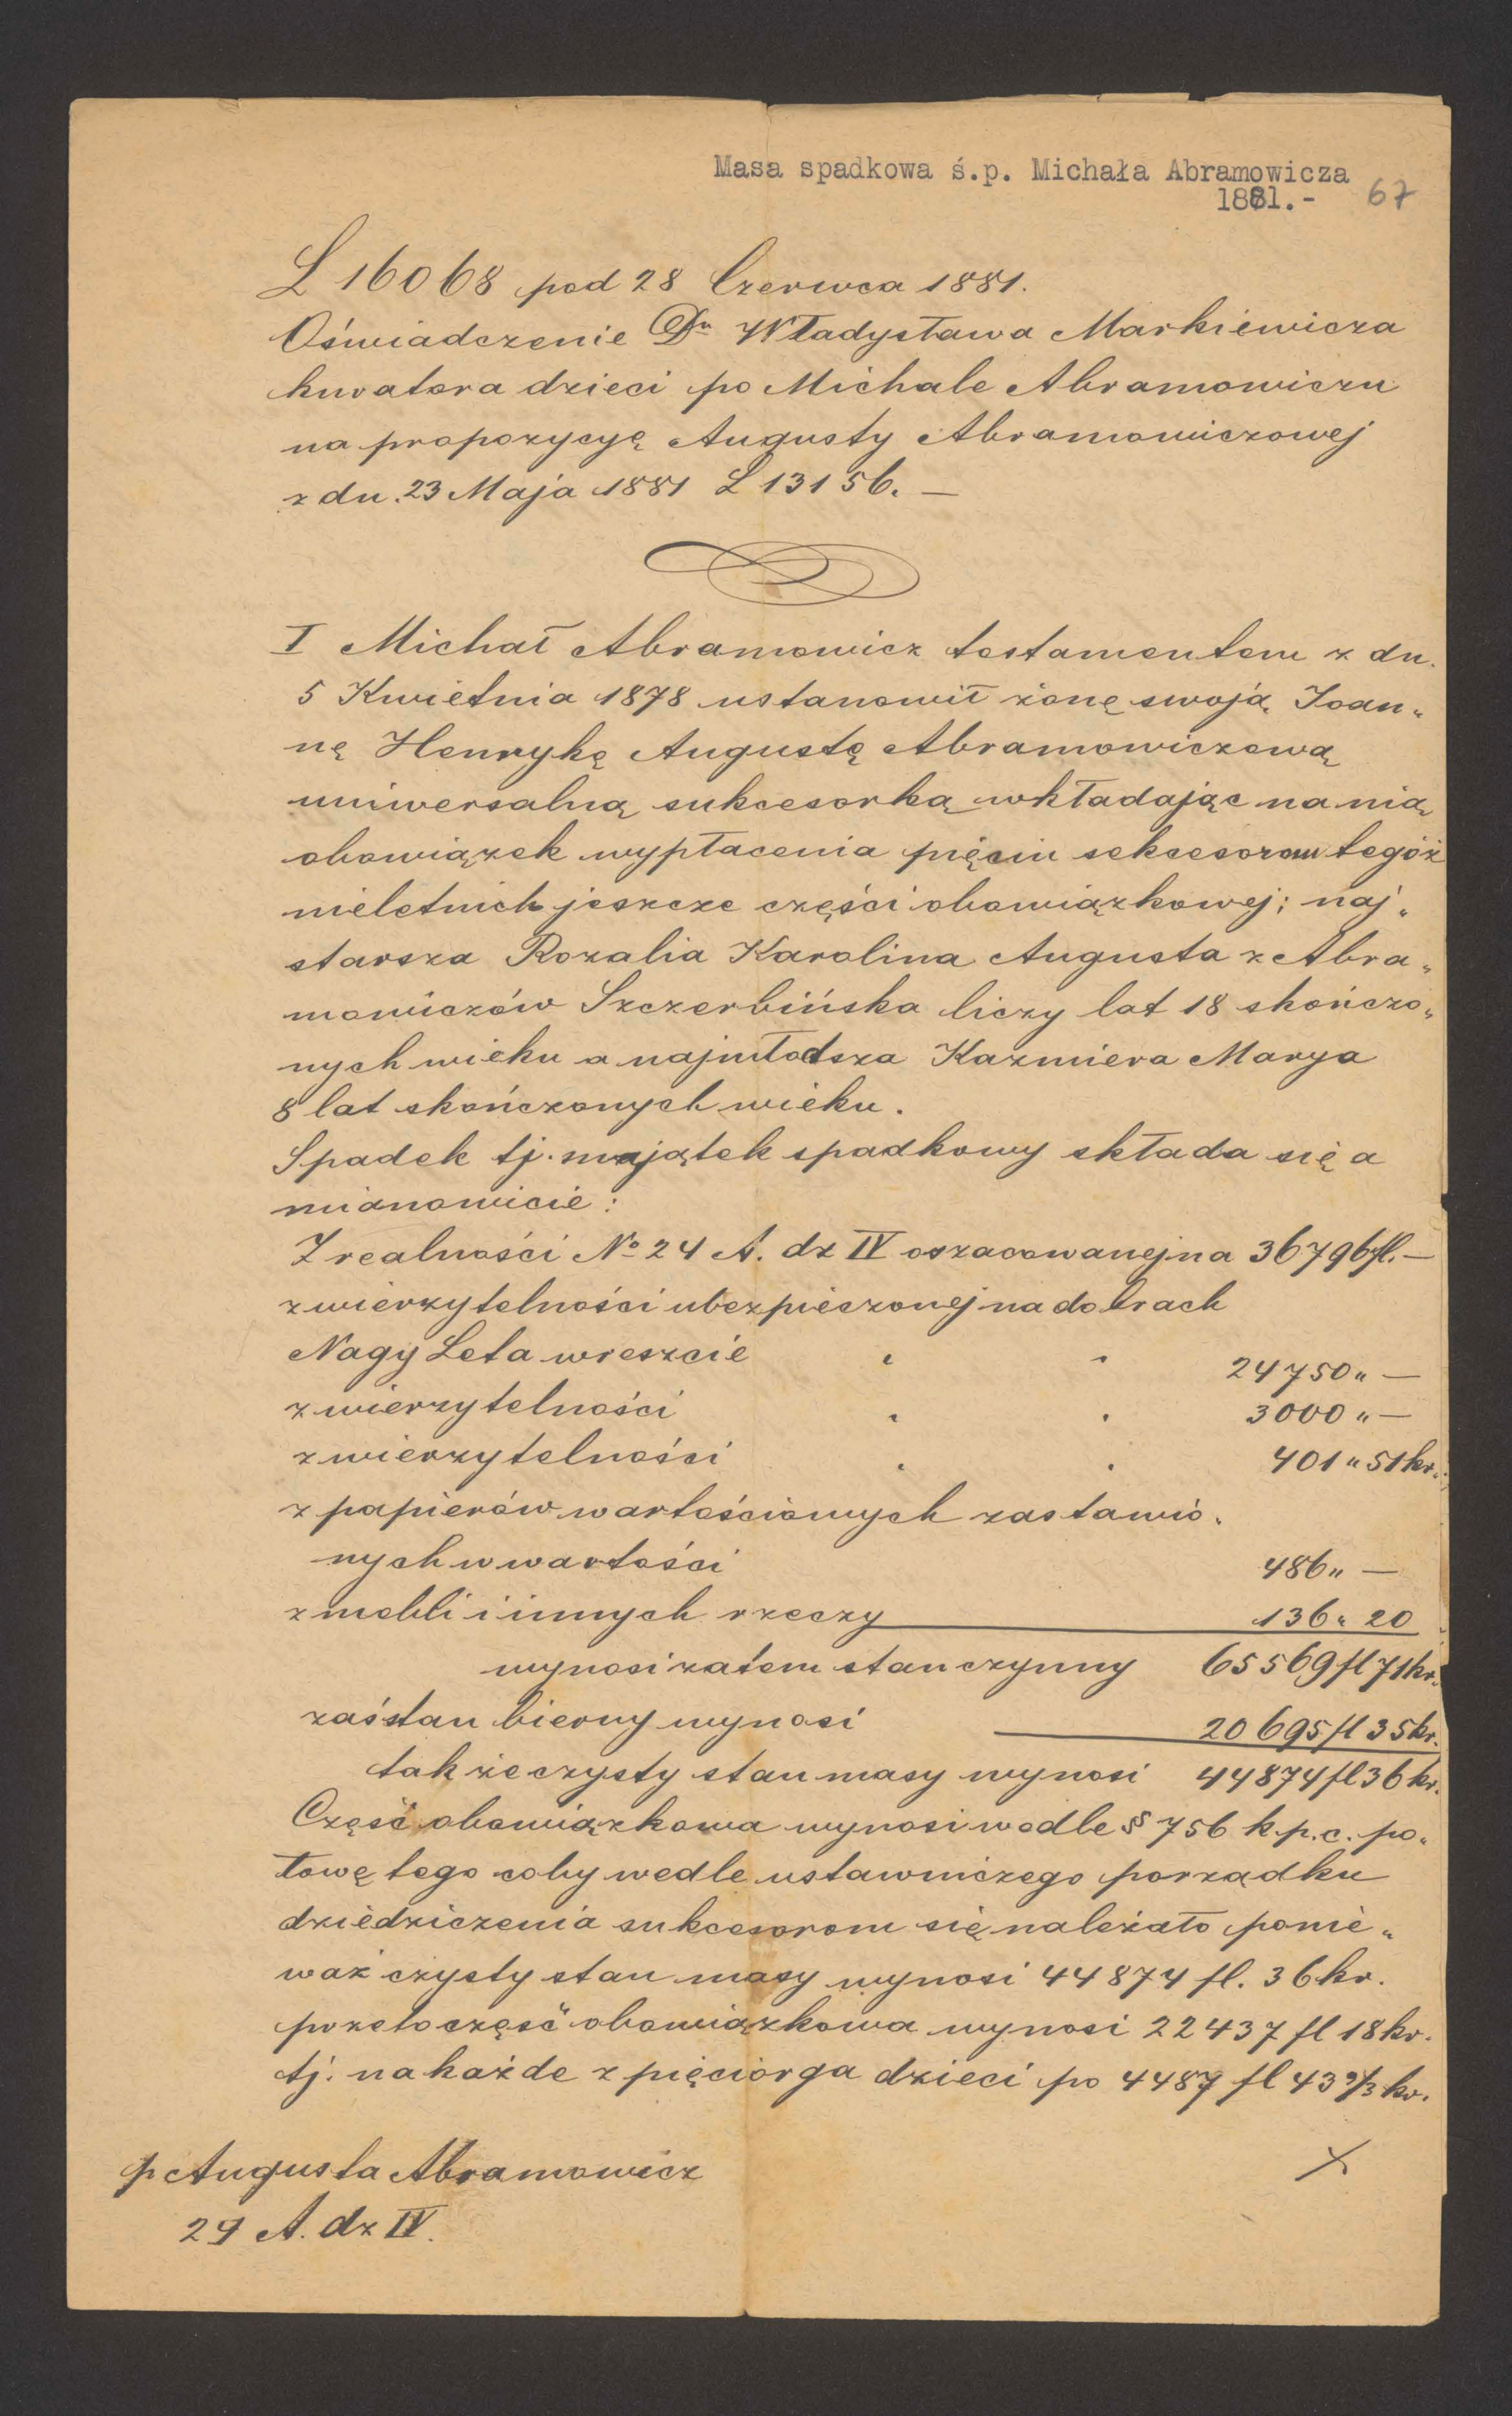 Masa spadkowa ś.p. Michała Abramowicza
1881.-
67
L 16068 pod 28 Czerwca 1881.
Oświadczenie Dra Władysława Markiewicza
kuratora dzieci po Michale Abramowiczu
na propozycyę Augusty Abramowiczowej
z dn. 23 Maja 1881 L 13156. —
I Michał Abramowicz testamentem z dn.
5 Kwietnia 1878 ustanowił żonę swoją Joan„
nę Henrykę Augustę Abramowiczową
uniwersalną sukcesorką wkładając na nią
obowiązek wypłacenia pięciu sekcesorom tegóż
nieletnich jeszcze części obowiązkowej; naj„
starsza Rozalia Karolina Augusta z Abra„
mowiczów Szczerbińska liczy lat 18 skończo„
nych wieku a najmłodsza Kazmiera Marya
8 lat skończonych wieku.
Spadek tj. majątek spadkowy składa się a
mianowicie:
Z realności No 24 A. dz IV oszacowanej na 36796 fl. —
z wierzytelności ubezpieczonej na dobrach
Nagy Leta wreszcie " " 24750 „ —
z wierzytelności " " 3000 „ —
z wierzytelności " " 401 „ 51 kr.
z papierów wartościowych zastawio„
nych w wartości 486 „ —
z mebli i innych rzeczy 136 „ 20
wynosi zatem stan czynny 65569 fl 71 kr.
zaś stan bierny wynosi 20695 fl 35 kr.
tak że czysty stan masy wynosi 44874 fl 36 kr.
Część obowiązkowa wynosi wedle § 756 k.p.c. po„
łowę tego coby wedle ustawniczego porządku
dziedziczenia sukcesorom się należało ponie„
waż czysty stan masy wynosi 44874 fl. 36 kr.
przeto część obowiązkowa wynosi 22437 fl 18 kr.
tj. na każde z pięciorga dzieci po 4487 fl 43 kr.
p Augusta Abramowicz
29 A. dz IV.